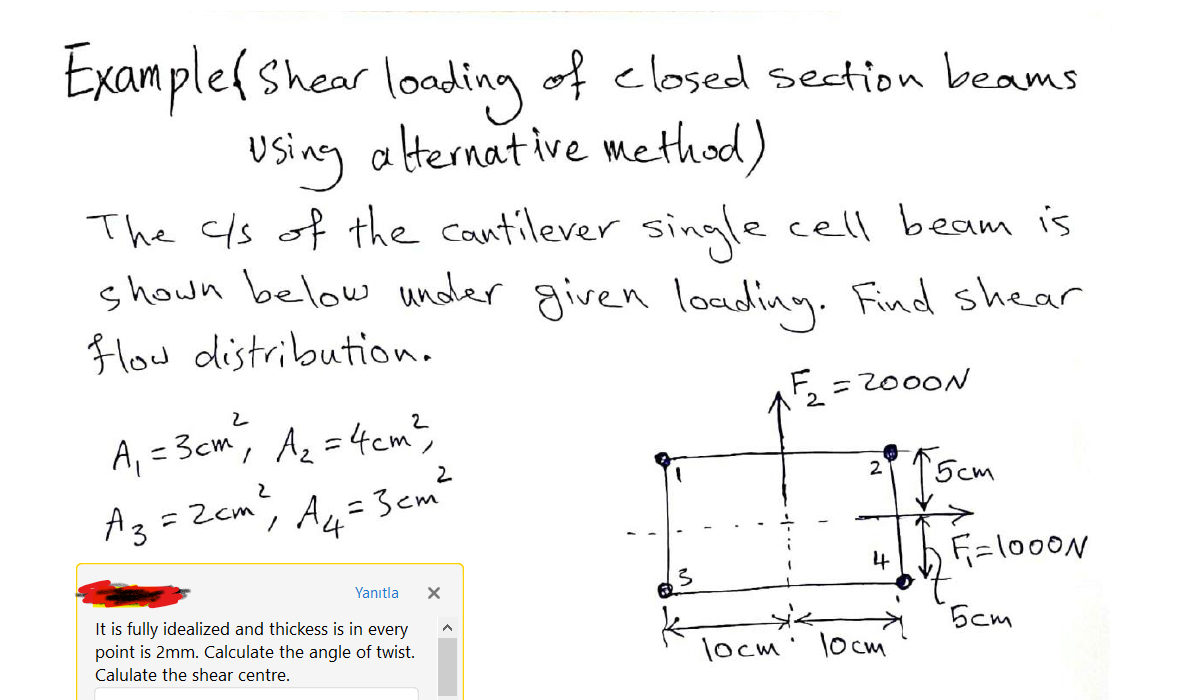 Example( Shear loading of closed section beams
using alternative method)
The c/s of the cantilever single cell beam is
shown below under given loading. Find shear
flow distribution.
A₁ = 3cm², A₂ = 4cm²,
A₃ = 2cm², A₄ = 3cm²
F₂ = 2000N
1
2
5cm
F₁=1000N
4
3
5cm
10cm
10cm
Yanıtla ×
It is fully idealized and thickess is in every
point is 2mm. Calculate the angle of twist.
Calulate the shear centre.